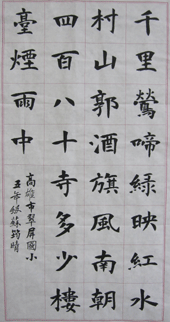 千里鶯啼綠映紅水
村山郭酒旗風南朝
四百八十寺多少樓
臺煙雨中
高雄市翠屏國小
五年級蘇筠晴